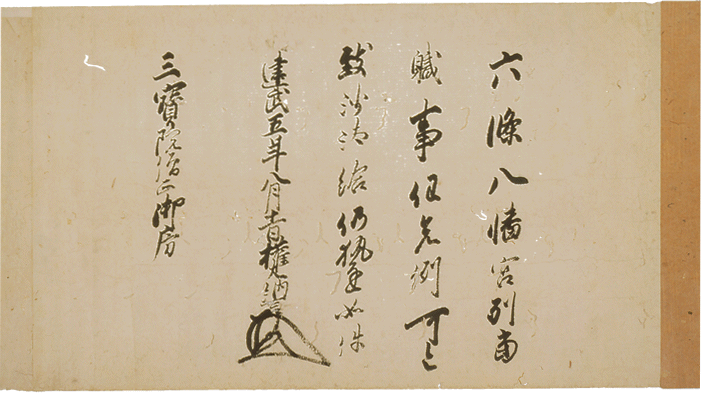 六條八幡宮別當
職事任先例可被
致沙汰給仍執達如件
建武五年八月十一日權大納言
三寶院僧正御房